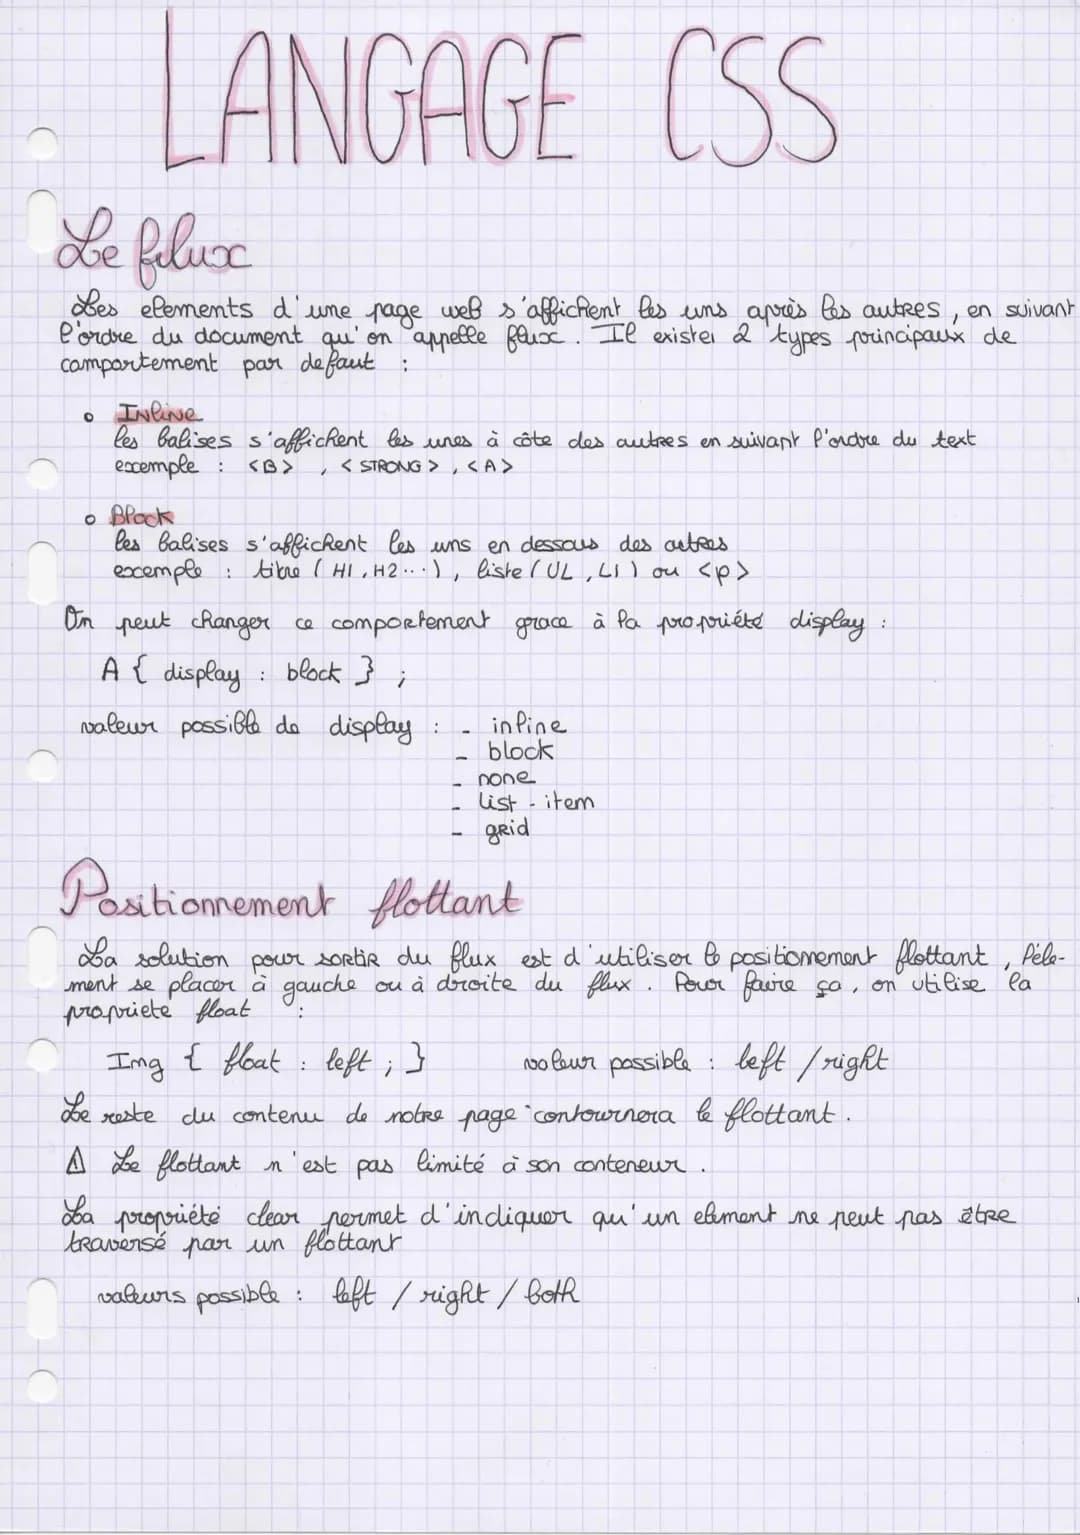 LANGAGE CSS
Le flux
Les elements d'une page web s'affichent les uns après les autres, en suivant
l'ordre du document qu'on appelle flux. Il existei 2 types principaux de
comportement par defaut :
• Inline
les balises s'affichent les unes à côte des autres en suivant l'ordre du text
exemple : <B> , <STRONG> , <A>
• Block
les balises s'affichent les uns en dessous des autres
exemple : titre ( H1 , H2 ... ) , liste ( UL , LI ) ou <p>
On peut changer ce comportement grace à la propriété display :
A { display : block } ;
valeur possible de display : - inline
- block
- none
- list - item
- grid
Positionnement flottant
La solution pour sortir du flux est d'utiliser le positionement flottant , l'éle-
ment se placer à gauche ou à droite du flux . Pour faire ça , on utilise la
propriete float :
Img { float : left ; } valeur possible : left / right
Le reste du contenu de notre page contournera le flottant .
⚠ Le flottant n'est pas limité à son conteneur .
La propriété clear permet d'indiquer qu'un element ne peut pas être
traversé par un flottant
valeurs possible : left / right / both